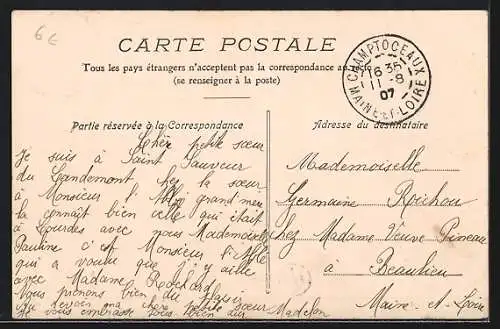 6€
CARTE POSTALE
Tous les pays étrangers n'acceptent pas la correspondance au
(se renseigner à la poste)
CHAMPTOCEAUX
16 35
11-8
07
MAINE-ET-LOIRE
Partie réservée à la Correspondance
Adresse du destinataire
Chère petite sœur
Je suis à Saint Sauveur
du Landemont chez la sœur
à Monsieur l'Abbé grand mère
la connaît bien elle qui était
à Lourdes avec vous Mademoiselle
Pauline c'est Monsieur l'Abbé
qui a voulu que j'y aille
avec Madame Rochard
Nous prenons bien du plaisir
Au revoir ma chère petite sœur
Je vous embrasse tous bien fort Madelon
Mademoiselle
Germaine Rochou
chez Madame Veuve Pineau
à Beaulieu
Maine-et-Loire